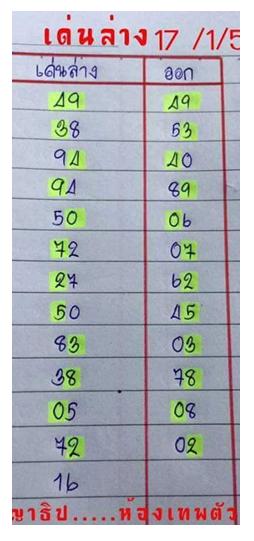 เด่นล่าง 17 /1/5
เด่นล่าง ออก
49 49
38 53
94 40
94 89
50 06
72 07
27 62
50 45
83 03
38 78
05 08
72 02
16
ญาธิป.....ห้องเทพตัว